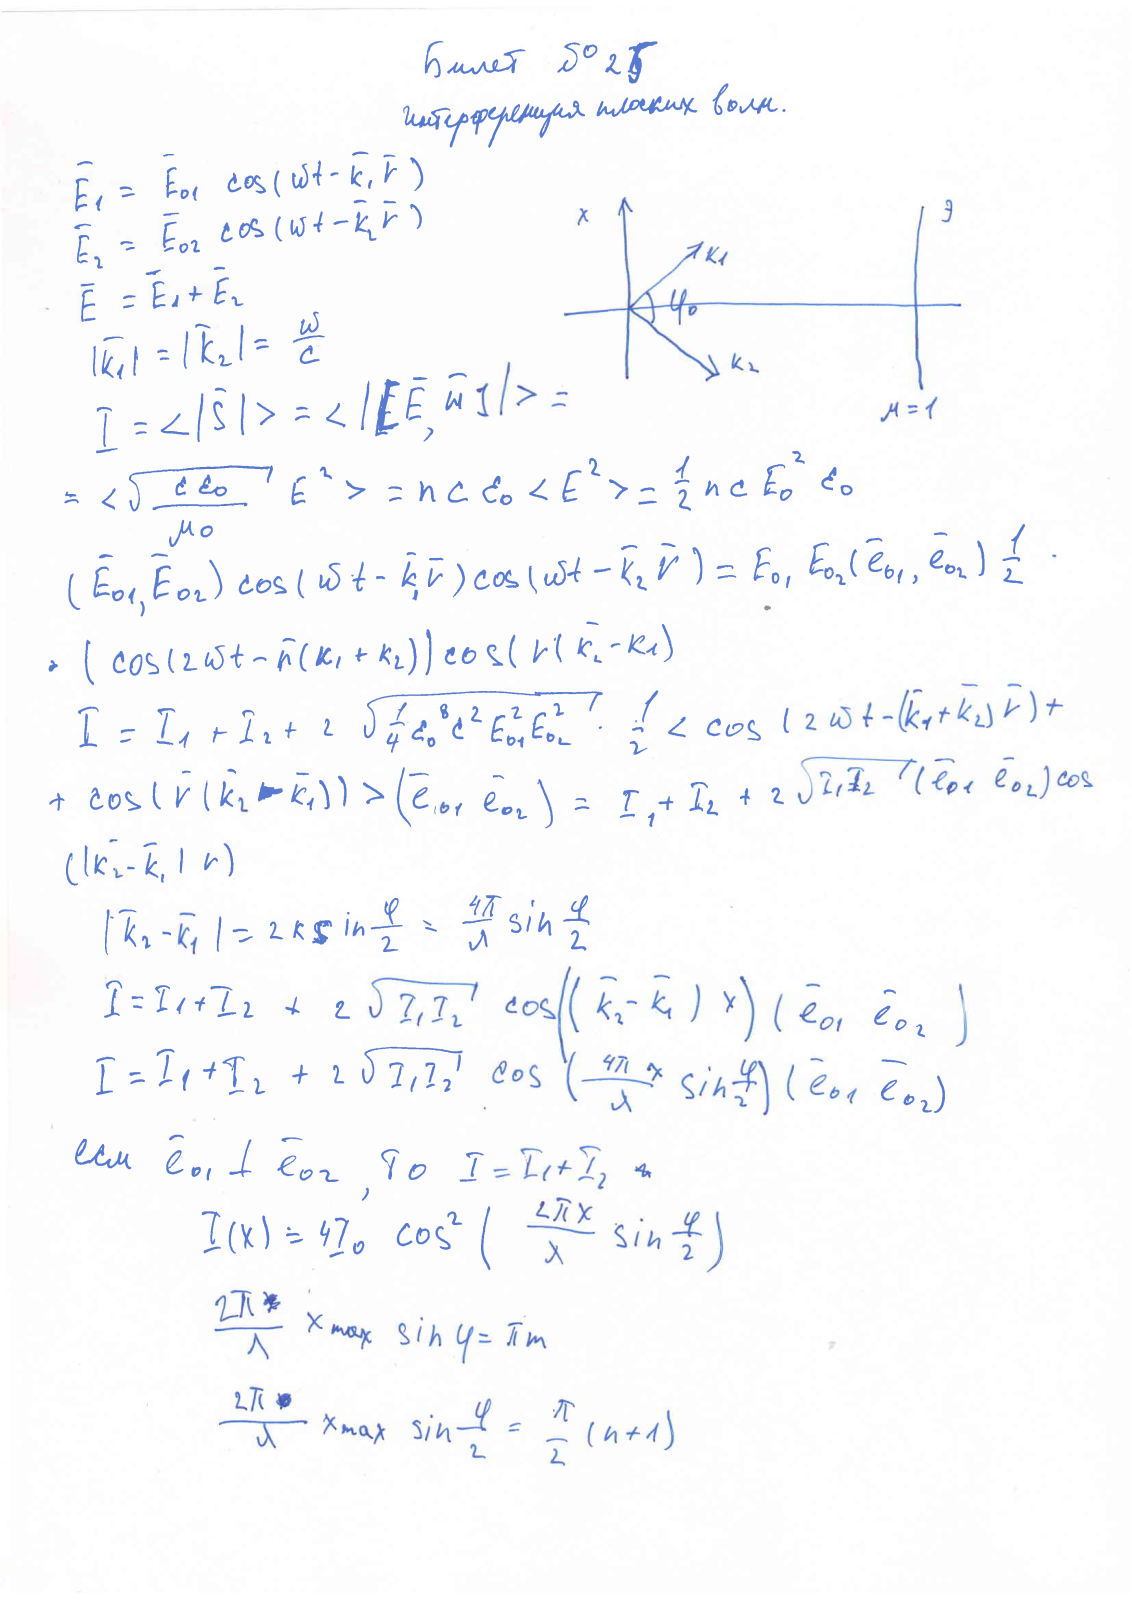 Билет № 25
интерференция плоских волн.
Ē₁ = Ē₀₁ cos(ωt - k̄₁ r̄)
Ē₂ = Ē₀₂ cos(ωt - k̄₂ r̄)
Ē = Ē₁ + Ē₂
|k̄₁| = |k̄₂| = ω/c
x
k₁
φ₀
k₂
Э
μ = 1
I = <|S̄|> = <|[Ē, H̄]|> =
= <√(εε₀/μ₀) E²> = n c ε₀ <E²> = 1/2 n c E₀² ε₀
(Ē₀₁, Ē₀₂) cos(ωt - k̄₁ r̄) cos(ωt - k̄₂ r̄) = E₀₁ E₀₂ (ē₀₁, ē₀₂) 1/2 ·
· (cos(2ωt - r̄(k₁ + k₂)) cos(r(k̄₂ - k₁)
I = I₁ + I₂ + 2 √(1/4 ε₀⁸ c² E₀₁² E₀₂²) · 1/2 < cos (2ωt - (k̄₁ + k̄₂) r̄) +
+ cos(r̄ (k̄₂ - k̄₁)) > (ē₀₁ ē₀₂) = I₁ + I₂ + 2 √(I₁ I₂) (ē₀₁ ē₀₂) cos
(|k̄₂ - k̄₁| r)
|k̄₂ - k̄₁| = 2k sin φ/2 = 4π/λ sin φ/2
I = I₁ + I₂ + 2 √(I₁ I₂) cos((k̄₂ - k̄₁) x) (ē₀₁ ē₀₂)
I = I₁ + I₂ + 2 √(I₁ I₂) cos (4π/λ x sin φ/2) (ē₀₁ ē₀₂)
если ē₀₁ ⊥ ē₀₂, то I = I₁ + I₂
I(x) = 4I₀ cos² (2πx/λ sin φ/2)
2π/λ x max sin φ = πm
2π/λ x max sin φ/2 = π/2 (n + 1)